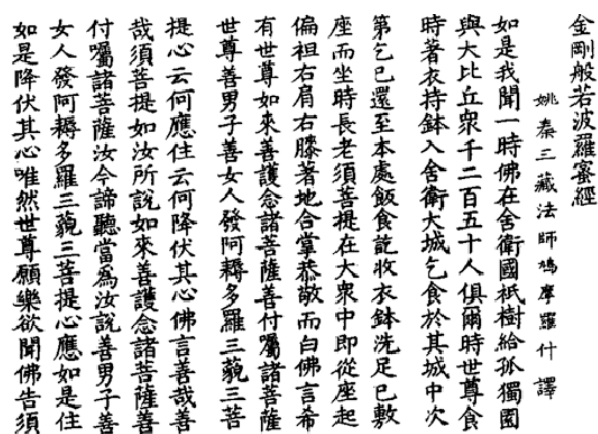 金剛般若波羅蜜經
姚秦三藏法師鳩摩羅什譯
如是我聞一時佛在舍衛國祇樹給孤獨園
與大比丘眾千二百五十人俱爾時世尊食
時著衣持鉢入舍衛大城乞食於其城中次
第乞已還至本處飯食訖收衣鉢洗足已敷
座而坐時長老須菩提在大眾中即從座起
偏袒右肩右膝著地合掌恭敬而白佛言希
有世尊如來善護念諸菩薩善付囑諸菩薩
世尊善男子善女人發阿耨多羅三藐三菩
提心云何應住云何降伏其心佛言善哉善
哉須菩提如汝所說如來善護念諸菩薩善
付囑諸菩薩汝今諦聽當為汝說善男子善
女人發阿耨多羅三藐三菩提心應如是住
如是降伏其心唯然世尊願樂欲聞佛告須